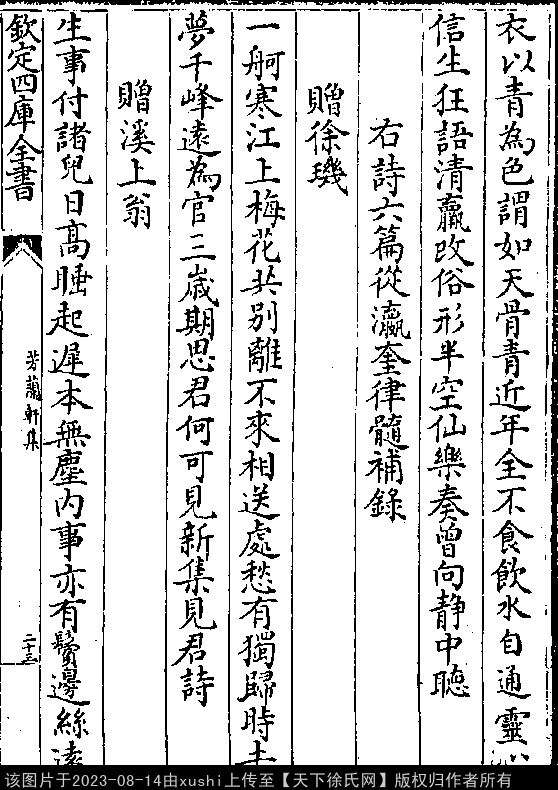 衣以青為色謂如天骨青近年全不食飲水自通靈
信生狂語清羸改俗形半空仙樂奏曾向靜中聽
右詩六篇從瀛奎律髓補錄
贈徐璣
一舸寒江上梅花共別離不來相送處愁有獨歸時
夢千峰遠為官三歲期思君何可見新集見君詩
贈溪上翁
生事付諸兒日髙睡起遲本無塵内事亦有鬢邊絲
欽定四庫全書
芳蘭軒集
二十三
该图片于2023-08-14由xushi上传至【天下徐氏网】版权归作者所有